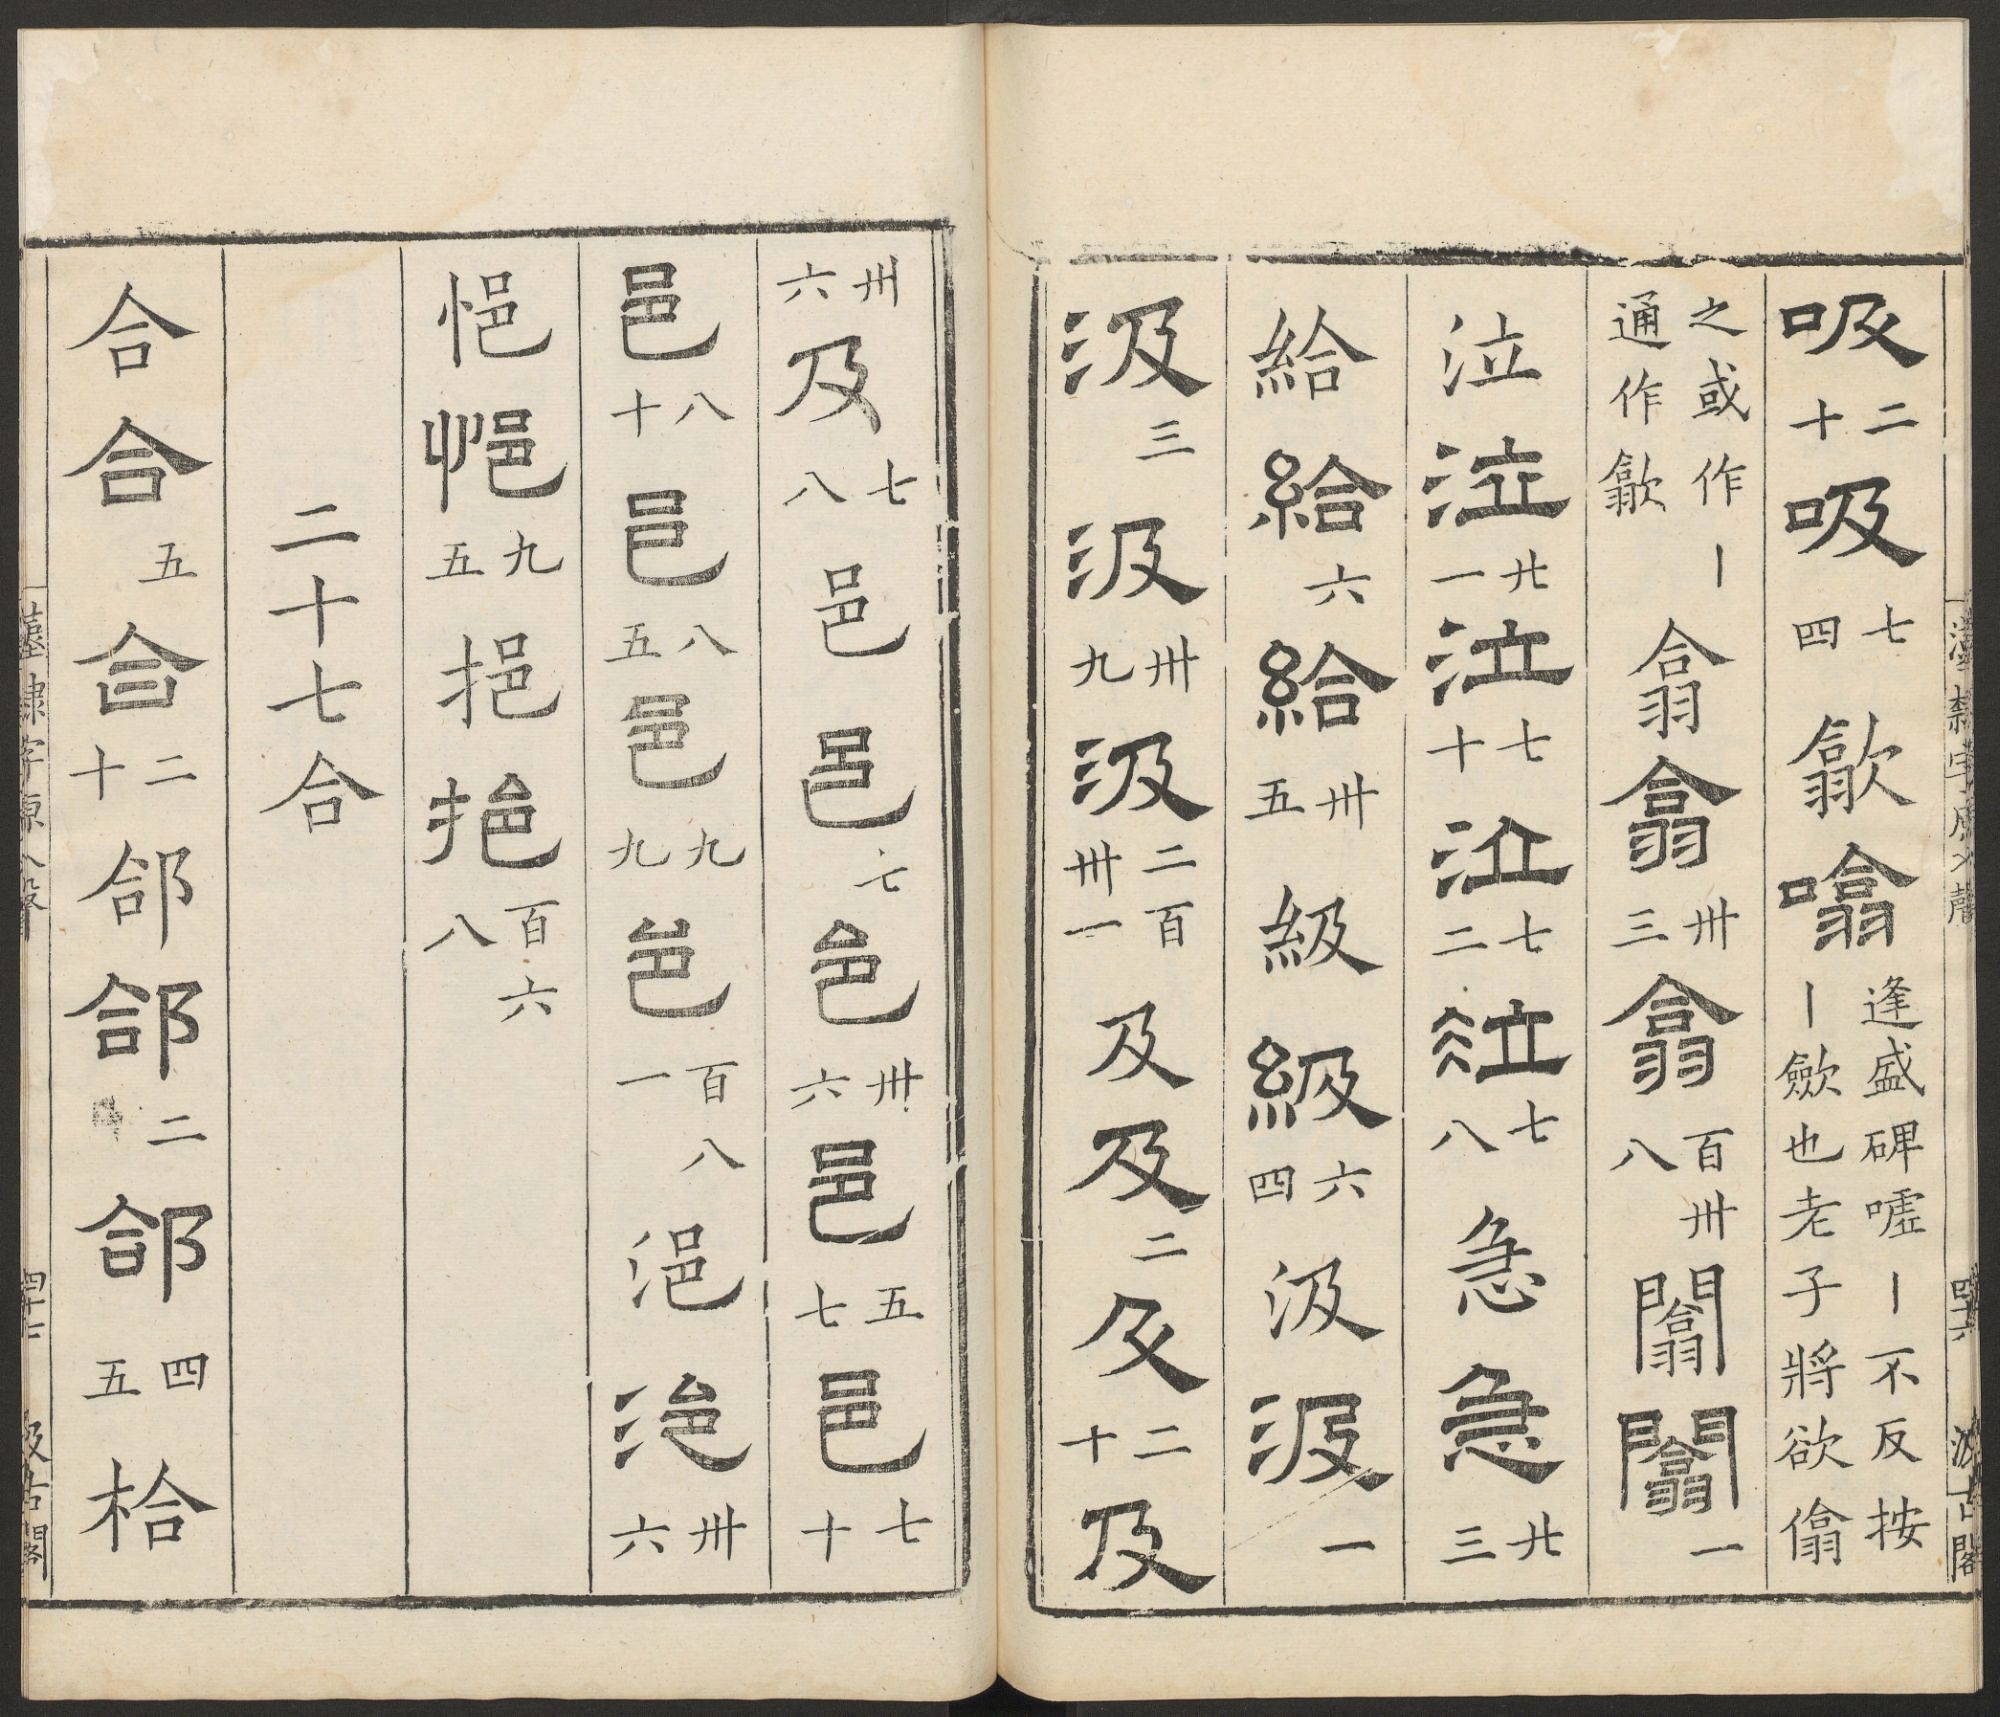 漢隸字原入聲 四十六 汲古閣
吸二十吸七四歙噏逢盛碑噓丨不反按丨歛也老子將欲
之或作丨通作歙翕翕卅三翕百卅八闟闟一
泣泣廿一泣七十泣七二泣七八急急廿三
給給六給卅五級級六四汲汲一
汲三汲卅九汲二百卅一及及二及二十及
卅六及七八邑邑七邑卅六邑五七邑七十
邑八十邑八五邑九九邑百八一浥浥卅六
悒悒九五挹挹百六八
二十七合
合合五合二十郃郃二郃四五㭘
漢隸字原入聲 四十七 汲古閣